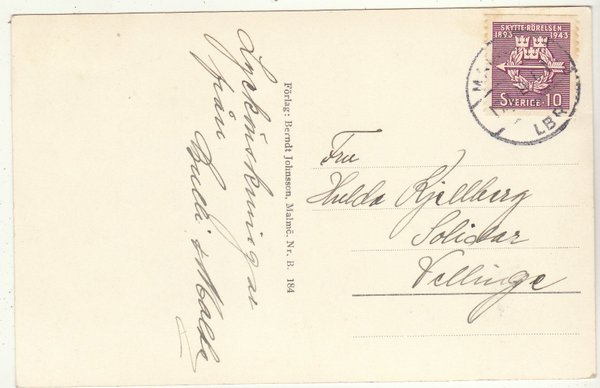 Lyckönskningar
från
Budi & Malde
Förlag: Berndt Johnsson, Malmö. Nr. B. 184
SKYTTE-RÖRELSEN
1893 1943
SVERIGE 10
MA
LBR
Fru
Hulda Kjellberg
Solidar
Vellinge